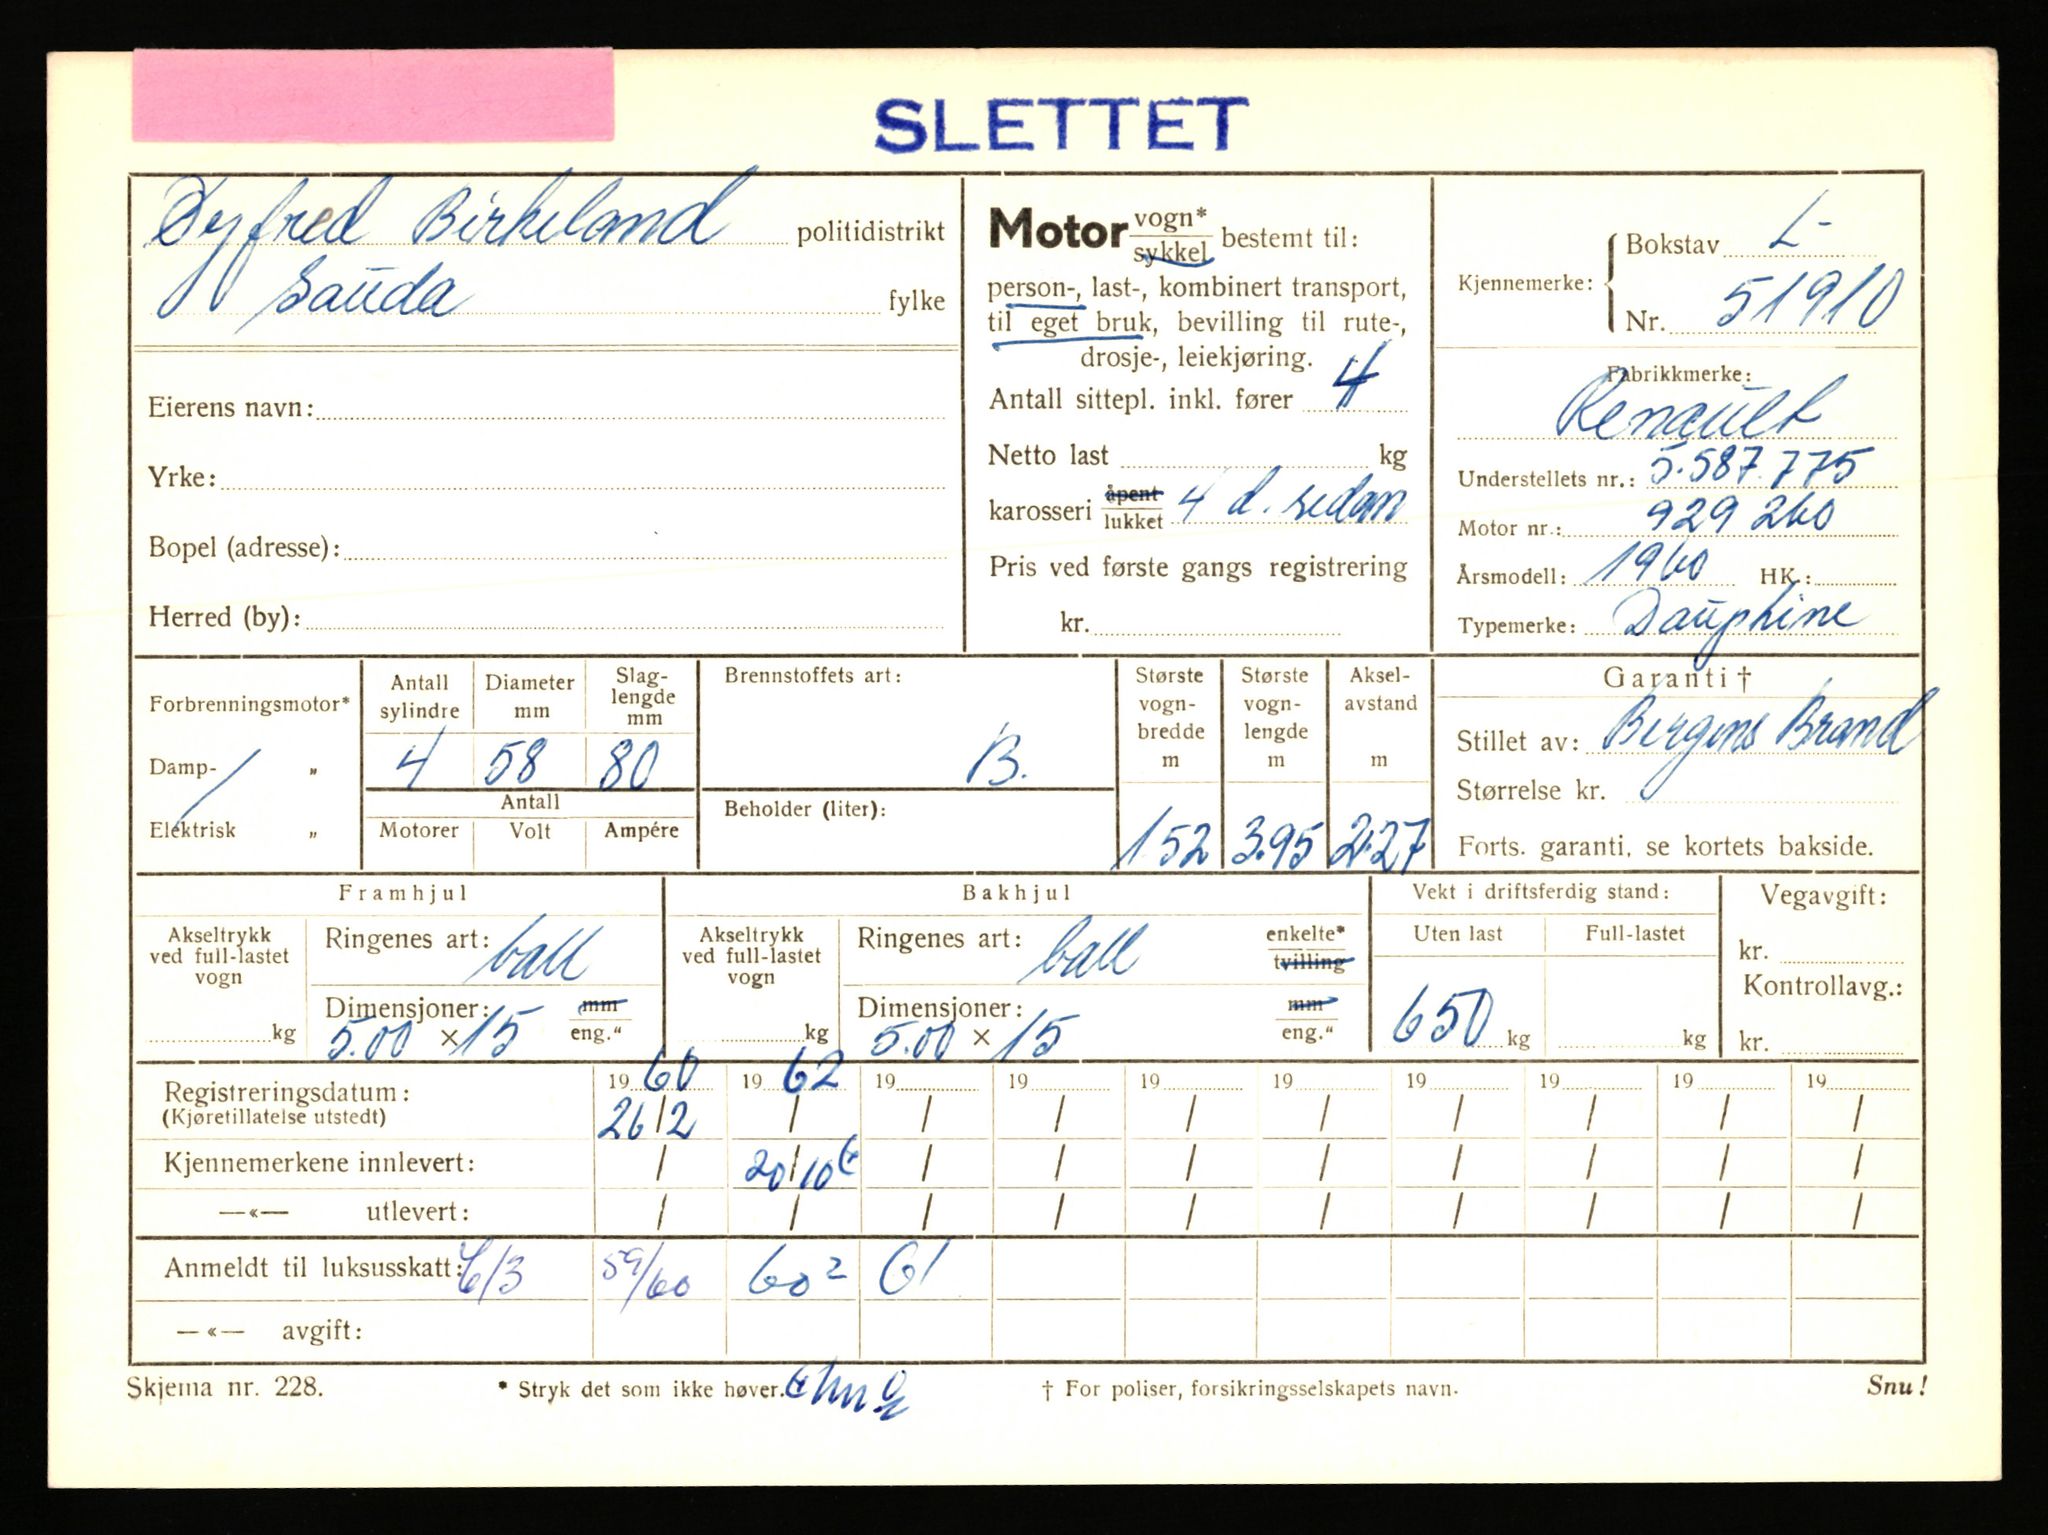 SLETTET
Birkeland politidistrikt
Sauda fylke
Eierens navn:
Yrke:
Bopel (adresse):
Herred (by):
Motor vogn*
sykkel bestemt til:
person-, last-, kombinert transport,
til eget bruk, bevilling til rute-,
drosje-, leiekjøring.
Antall sittepl. inkl. fører 4
Netto last kg
karosseri åpent
lukket 4 d. sedan
Pris ved første gangs registrering
kr.
Kjennemerke: Bokstav L-
Nr. 51910
Fabrikkmerke:
Renault
Understellets nr.: 5.587.775
Motor nr.: 929260
Årsmodell: 1960 HK.:
Typemerke: Dauphine
Forbrenningsmotor*
Damp- „
Elektrisk „
Antall sylindre
4
Diameter mm
58
Slag-
lengde
mm
80
Antall
Motorer Volt Ampére
Brennstoffets art:
B.
Beholder (liter):
Største
vogn-
bredde
m
1.52
Største
vogn-
lengde
m
3.95
Aksel-
avstand
m
2.27
Garanti †
Stillet av: Bergens Brand
Størrelse kr.
Forts. garanti, se kortets bakside.
Framhjul
Akseltrykk
ved full-lastet
vogn
kg
Ringenes art: ball
Dimensjoner: mm
5.00 × 15 eng.“
Bakhjul
Akseltrykk
ved full-lastet
vogn
kg
Ringenes art: ball enkelte*
tvilling
Dimensjoner: mm
5.00 × 15 eng.“
Vekt i driftsferdig stand:
Uten last Full-lastet
650 kg kg
Vegavgift:
kr.
Kontrollavg.:
kr.
Registreringsdatum: 19 60 19 62 19 19 19 19 19 19 19 19
(Kjøretillatelse utstedt) 26/2 / / / / / / / / /
Kjennemerkene innlevert: / 20/10 / / / / / / / /
—«— utlevert: / / / / / / / / / /
Anmeldt til luksusskatt: 6/3 59/60 60² 61
—«— avgift:
Skjema nr. 228. * Stryk det som ikke høver. † For poliser, forsikringsselskapets navn. Snu!